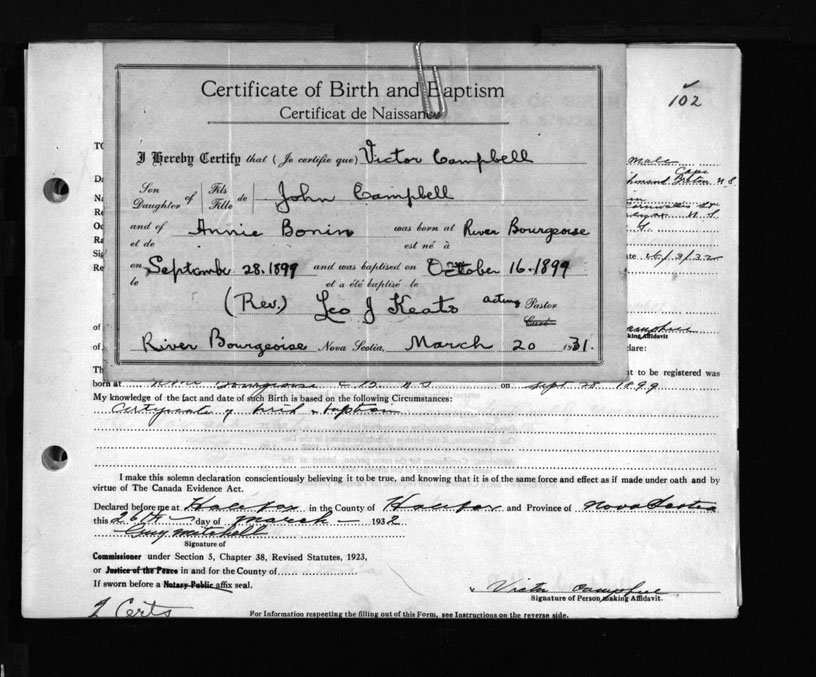 102
Certificate of Birth and Baptism
Certificat de Naissance
I Hereby Certify that (Je certifie que) Victor Campbell
Son Daughter of Fils Fille de John Campbell
and of Annie Bonin was born at River Bourgeoise
et de est né à
on September 28. 1899 and was baptised on October 16. 1899
le et a été baptisé le
(Rev.) Leo J Keats acting Pastor
Curé
River Bourgeoise Nova Scotia, March 20 1931.
TO
male
Cape
Richmond Breton N S
26/3/32
Campbell
making Affidavit
lare:
t to be registered was
born at River Bourgeoise C.B. N S on Sept 28 1899
My knowledge of the fact and date of such Birth is based on the following Circumstances:
Certificate of birth & baptism
I make this solemn declaration conscientiously believing it to be true, and knowing that it is of the same force and effect as if made under oath and by
virtue of The Canada Evidence Act.
Declared before me at Halifax in the County of Halifax and Province of Nova Scotia
this 26th day of March 1932
Guy Mitchell
Signature of
Commissioner under Section 5, Chapter 38, Revised Statutes, 1923,
or Justice of the Peace in and for the County of
If sworn before a Notary Public affix seal.
Victor Campbell
Signature of Person making Affidavit.
2 Certs
For Information respecting the filling out of this Form, see Instructions on the reverse side.